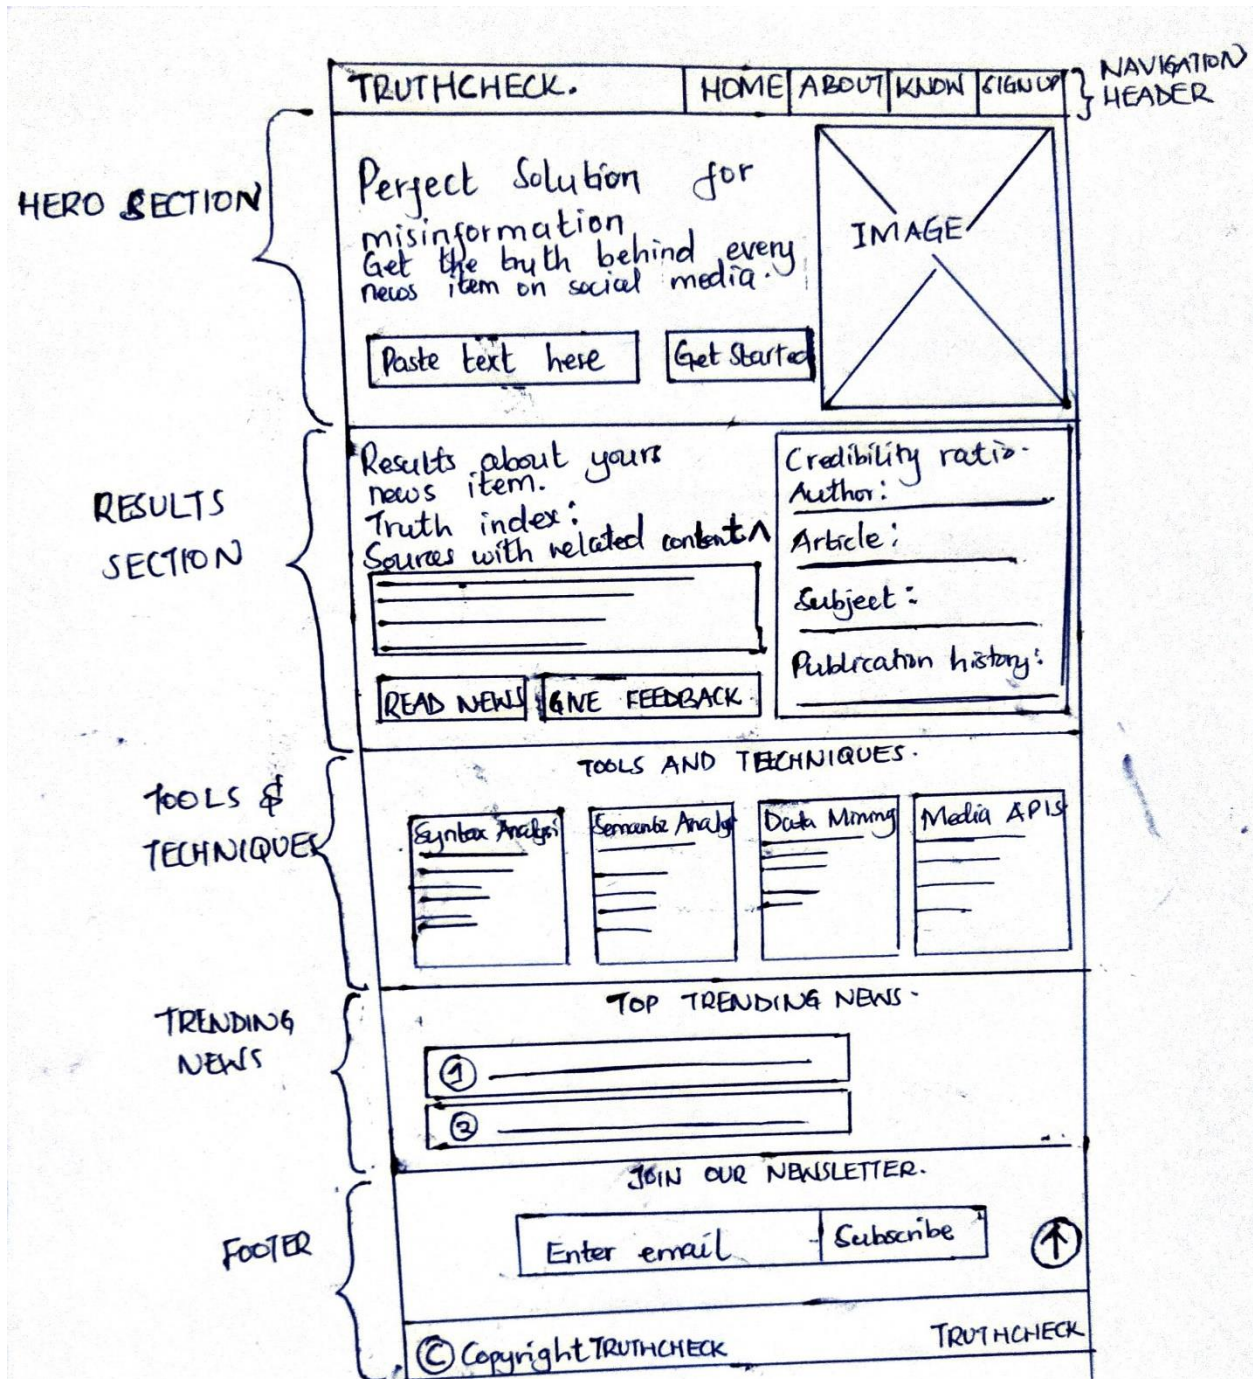 TRUTHCHECK. HOME ABOUT KNOW SIGN UP
NAVIGATION
HEADER
HERO SECTION
Perfect Solution for
misinformation
Get the truth behind every
news item on social media.
Paste text here Get Started
IMAGE
RESULTS
SECTION
Results about yours
news item.
Truth index:
Sources with related content ^
READ NEWS GIVE FEEDBACK
Credibility ratio.
Author:
Article:
Subject:
Publication history:
TOOLS &
TECHNIQUES
TOOLS AND TECHNIQUES.
Syntax Analysi Semantic Analys Data Mining Media APIS
TRENDING
NEWS
TOP TRENDING NEWS.
1
2
FOOTER
JOIN OUR NEWSLETTER.
Enter email Subscribe
↑
© Copyright TRUTHCHECK TRUTHCHECK